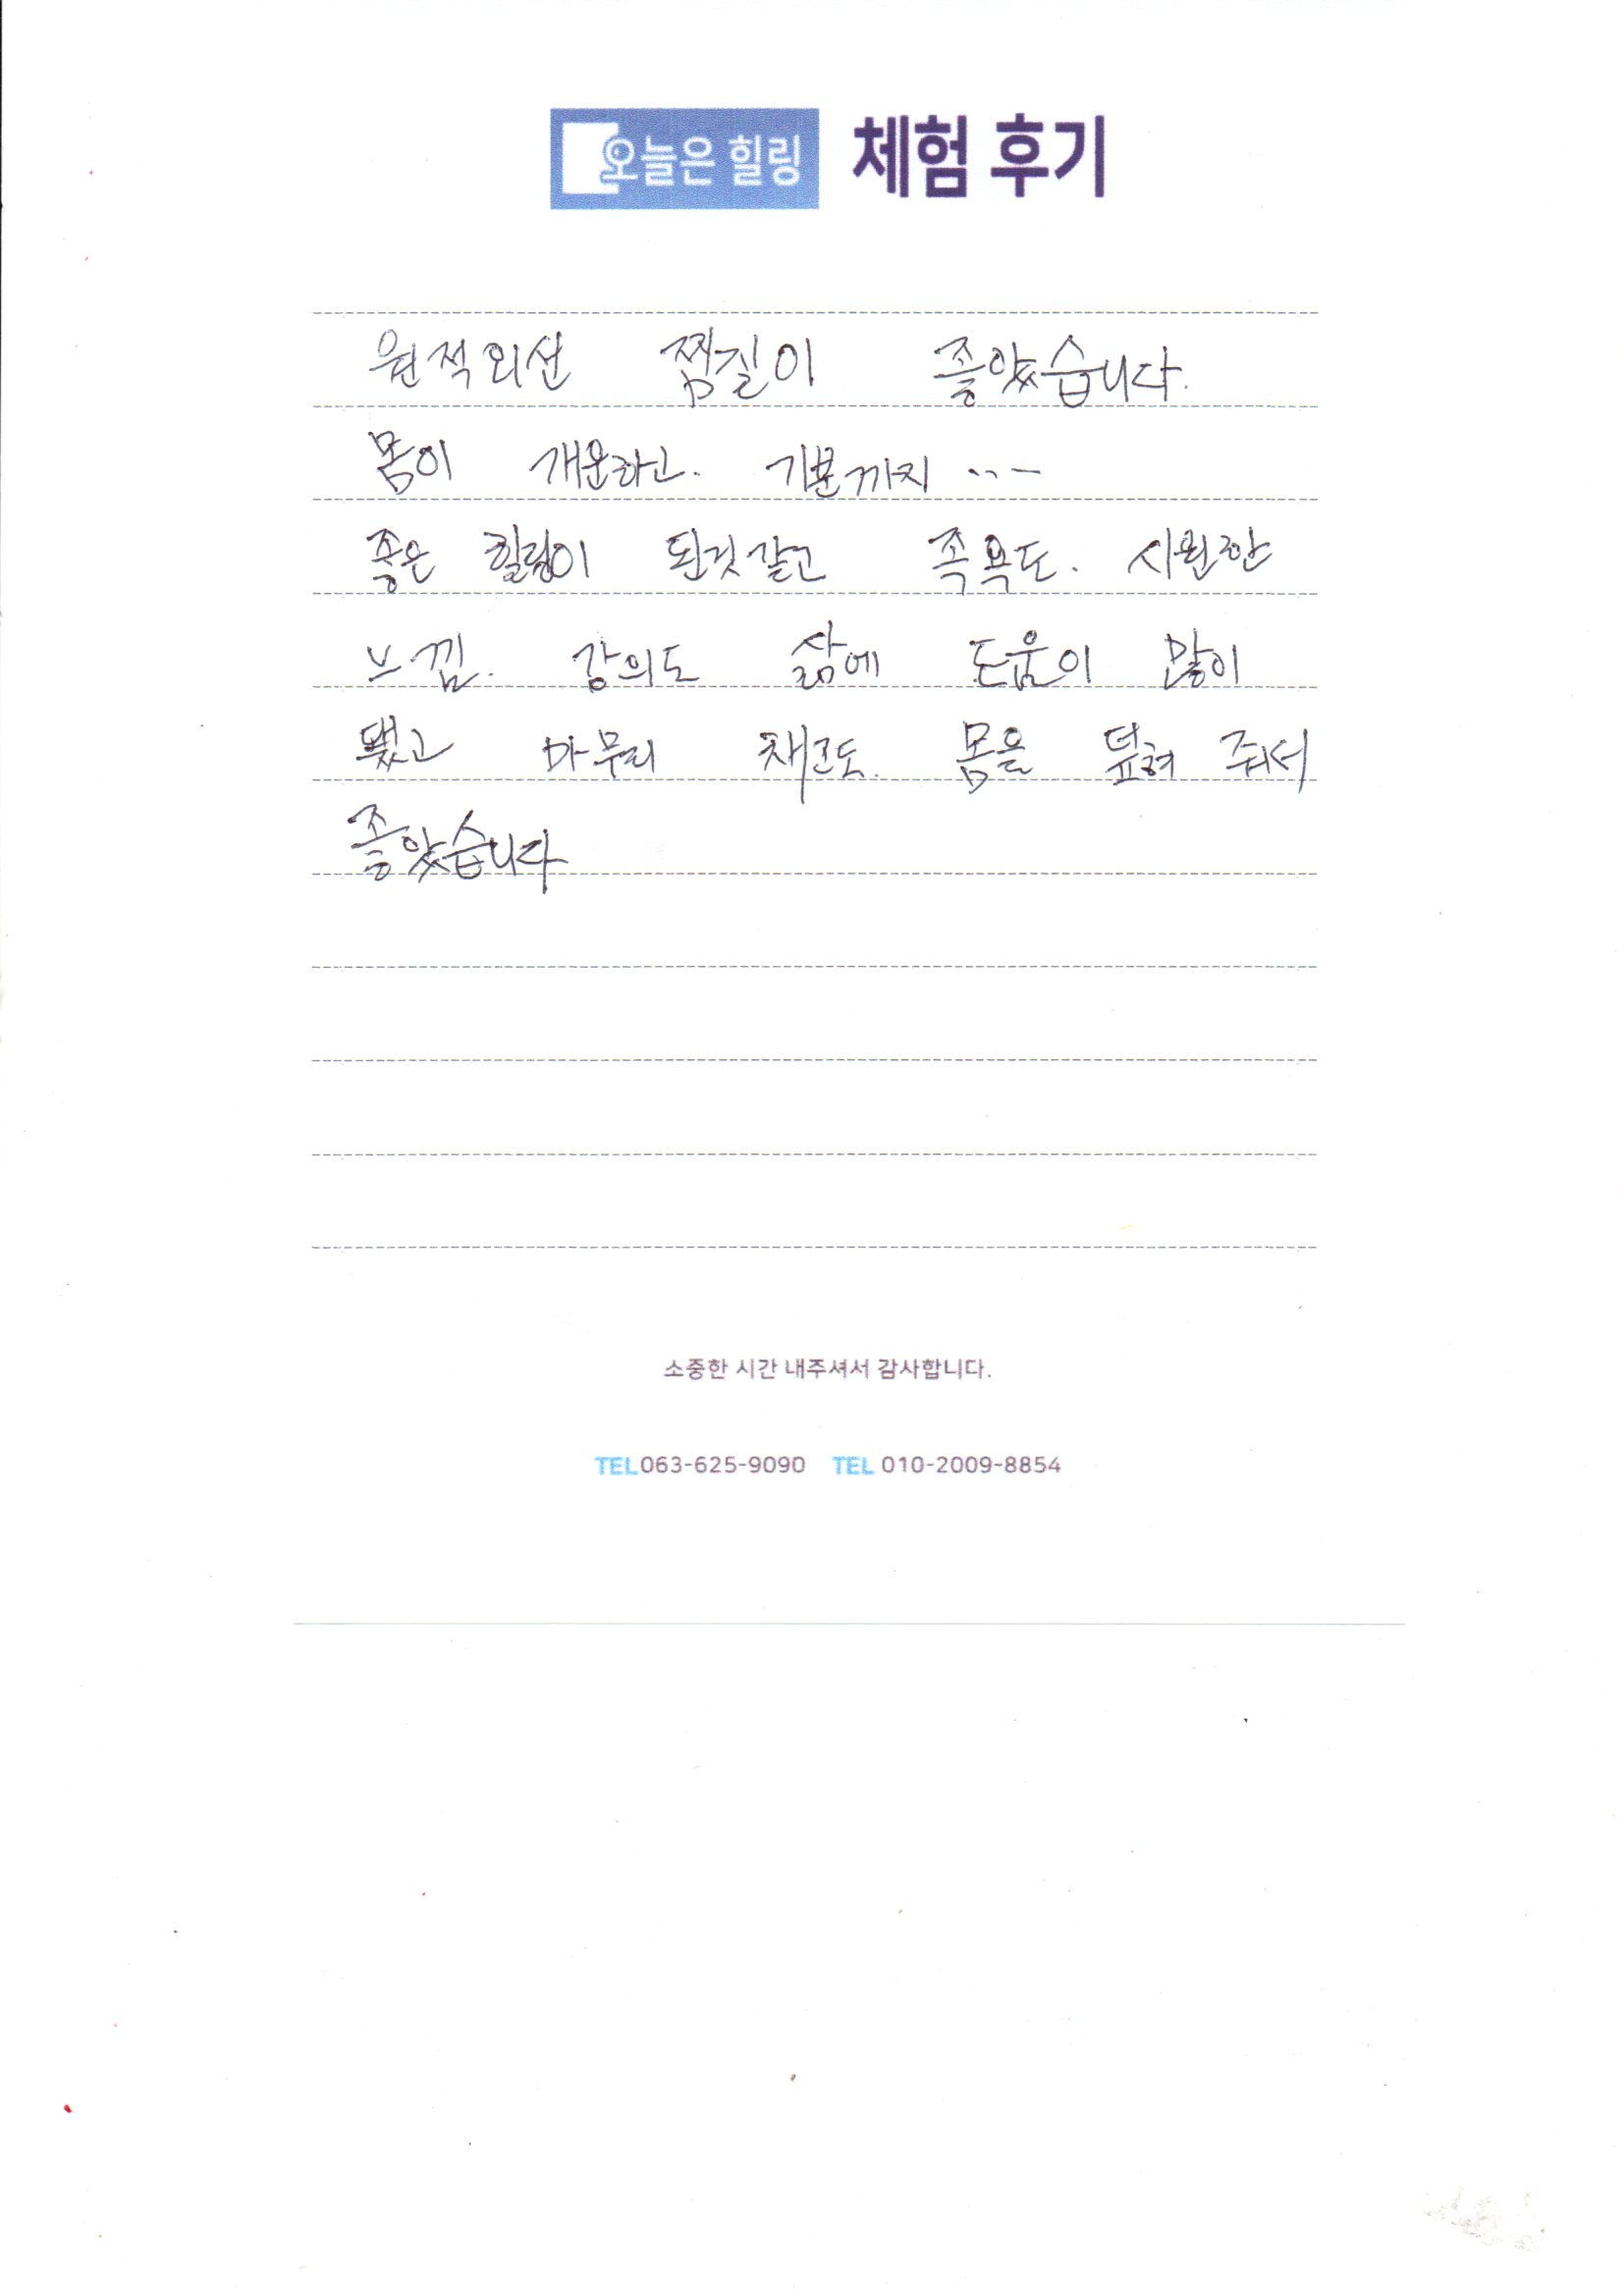 오늘은 힐링 체험 후기
원적외선 찜질이 좋았습니다.
몸이 개운하고. 기분까지 ...
좋은 힐링이 된것같고 족욕도. 시원한
느낌. 강의도 삶에 도움이 많이
됐고 마무리 도. 몸을 뎦혀 줘서
좋았습니다
소중한 시간 내주셔서 감사합니다.
TEL 063-625-9090 TEL 010-2009-8854